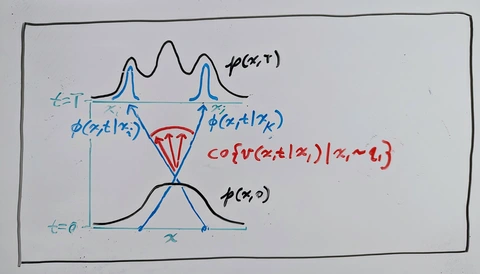 p(x,T)
t=T
x_i x_j
ϕ(x,t|x_i) ϕ(x,t|x_k)
co{v(x,t|x_1)|x_1~q_1}
p(x,0)
t=0
x